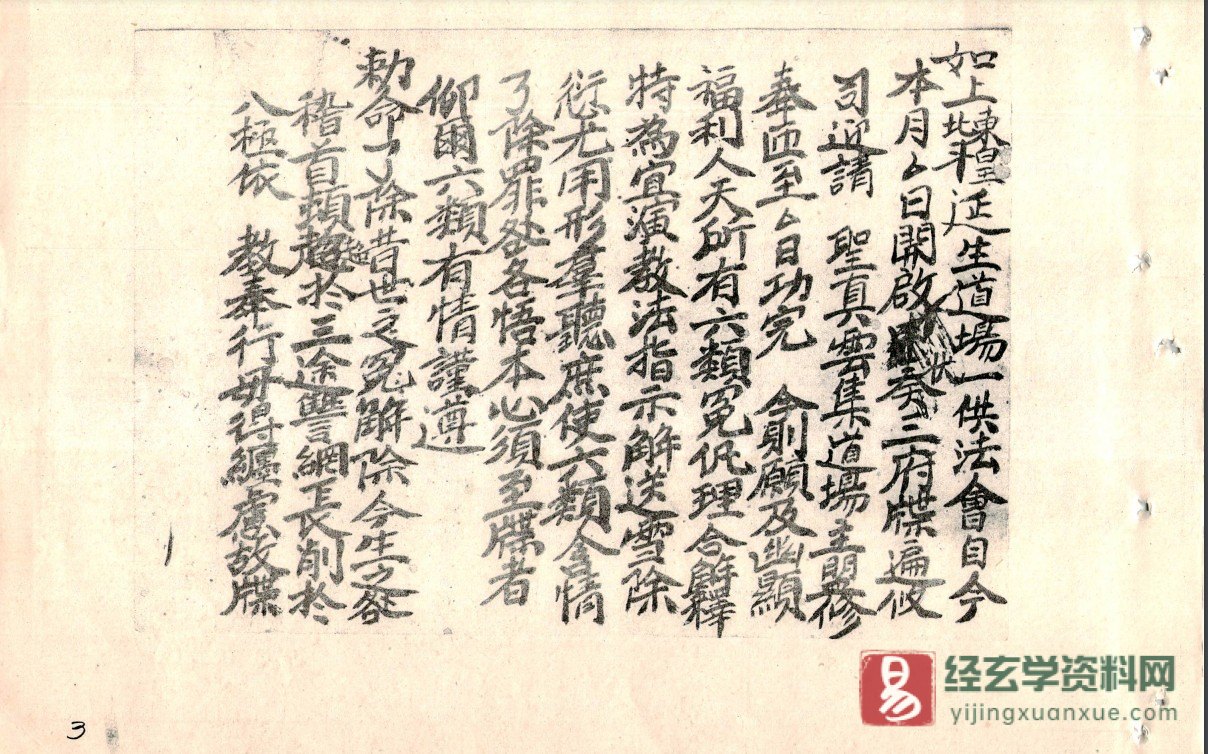 如上東皇北斗延生道場一供法會自今
本月厶日開啟奏狀三府牒遍攸
司迎請 聖真雲集道場主盟修
奉迊至厶日功完 今則願及幽顯
福利人天所有六類冤仇理合解釋
特為宣演教法指示解送雪除
愆尤用形羣聽庶使六類含情
了除罪咎各悟本心須至牒者
仰爾六類有情謹遵
勅命了除昔世之冤解除今生之咎
稽首頼超於三途讐網長削於
八極依 教奉行毋得纏虑故牒
3
易
经玄学资料网
yijingxuanxue.com